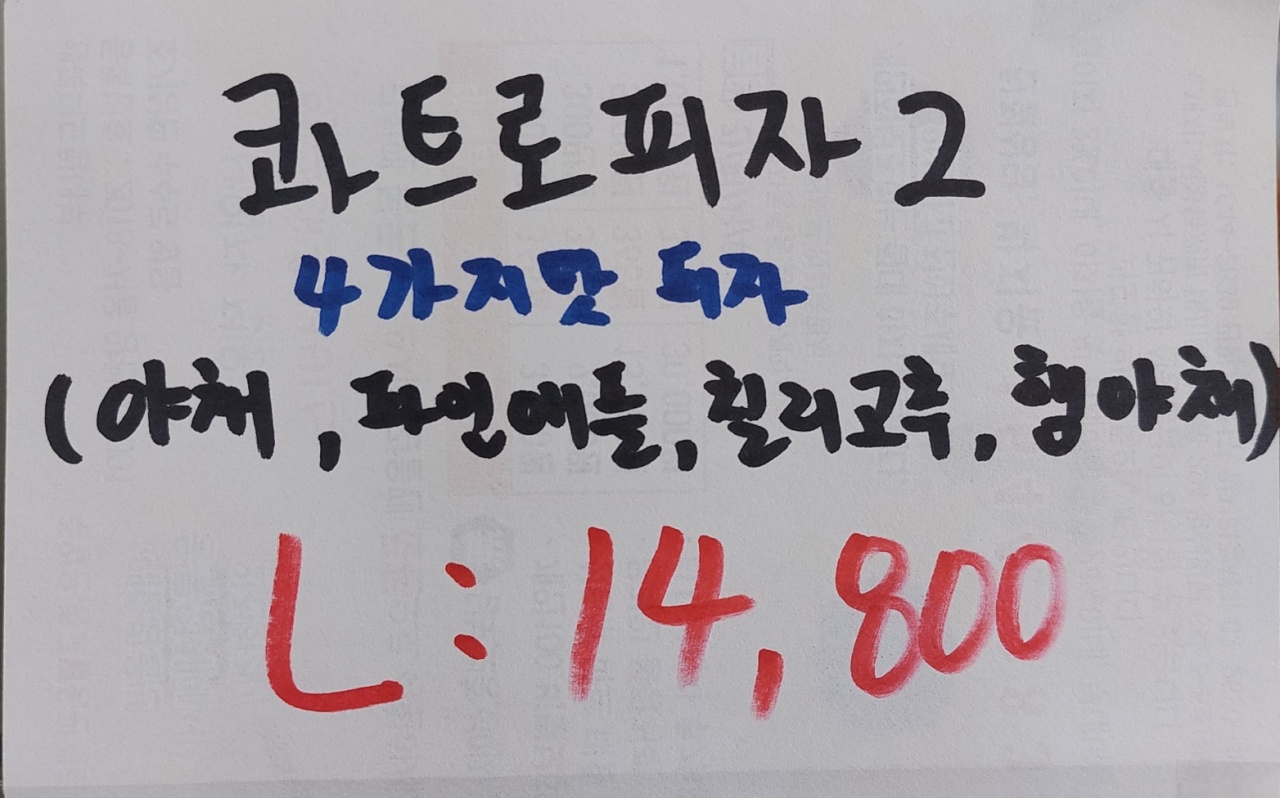 콰트로피자 2
4가지맛 피자
(야채, 파인애플, 칠리고추, 햄야채)
L: 14,800